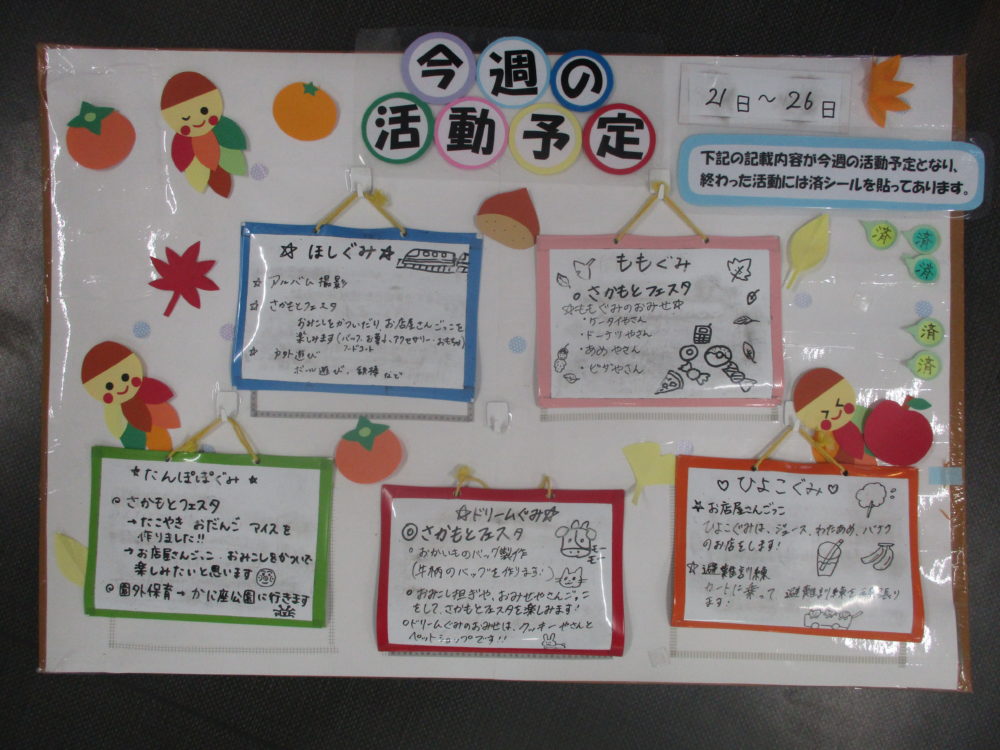 今週の
活動予定
21日～26日
下記の記載内容が今週の活動予定となり、
終わった活動には済シールを貼ってあります。
済
済
済
済
済
☆ほしぐみ☆
☆アルバム撮影
☆さかもとフェスタ
おみこしをかついだり、お店屋さんごっこを
楽しみます(バッグ、お菓子、アクセサリー、おもちゃ)
フードコート
☆戸外遊び
ボール遊び、鉄棒など
ももぐみ
○さかもとフェスタ
☆ももぐみのおみせ☆
・ケータイやさん
・ドーナツやさん
・あめやさん
・ピザやさん
☆たんぽぽぐみ☆
◎さかもとフェスタ
→たこやき おだんご アイスを
作りました!!
→お店屋さんごっこ、おみこしをかついで
楽しみたいと思います
◎園外保育→かに座公園に行きます
☆ドリームぐみ☆
◎さかもとフェスタ
○おかいものバッグ製作
(牛柄のバッグを作ります!)
モー
モー
○おみこし担ぎや、おみせやさんごっこ
をして、さかもとフェスタを楽しみます!
○ドリームぐみのおみせは、クッキーやさんと
ペットショップです!!
♡ひよこぐみ♡
☆お店屋さんごっこ
ひよこぐみは、ジュース、わたあめ、バナナ
のお店をします!
☆避難訓練
カートに乗って、避難訓練を頑張り
ます!